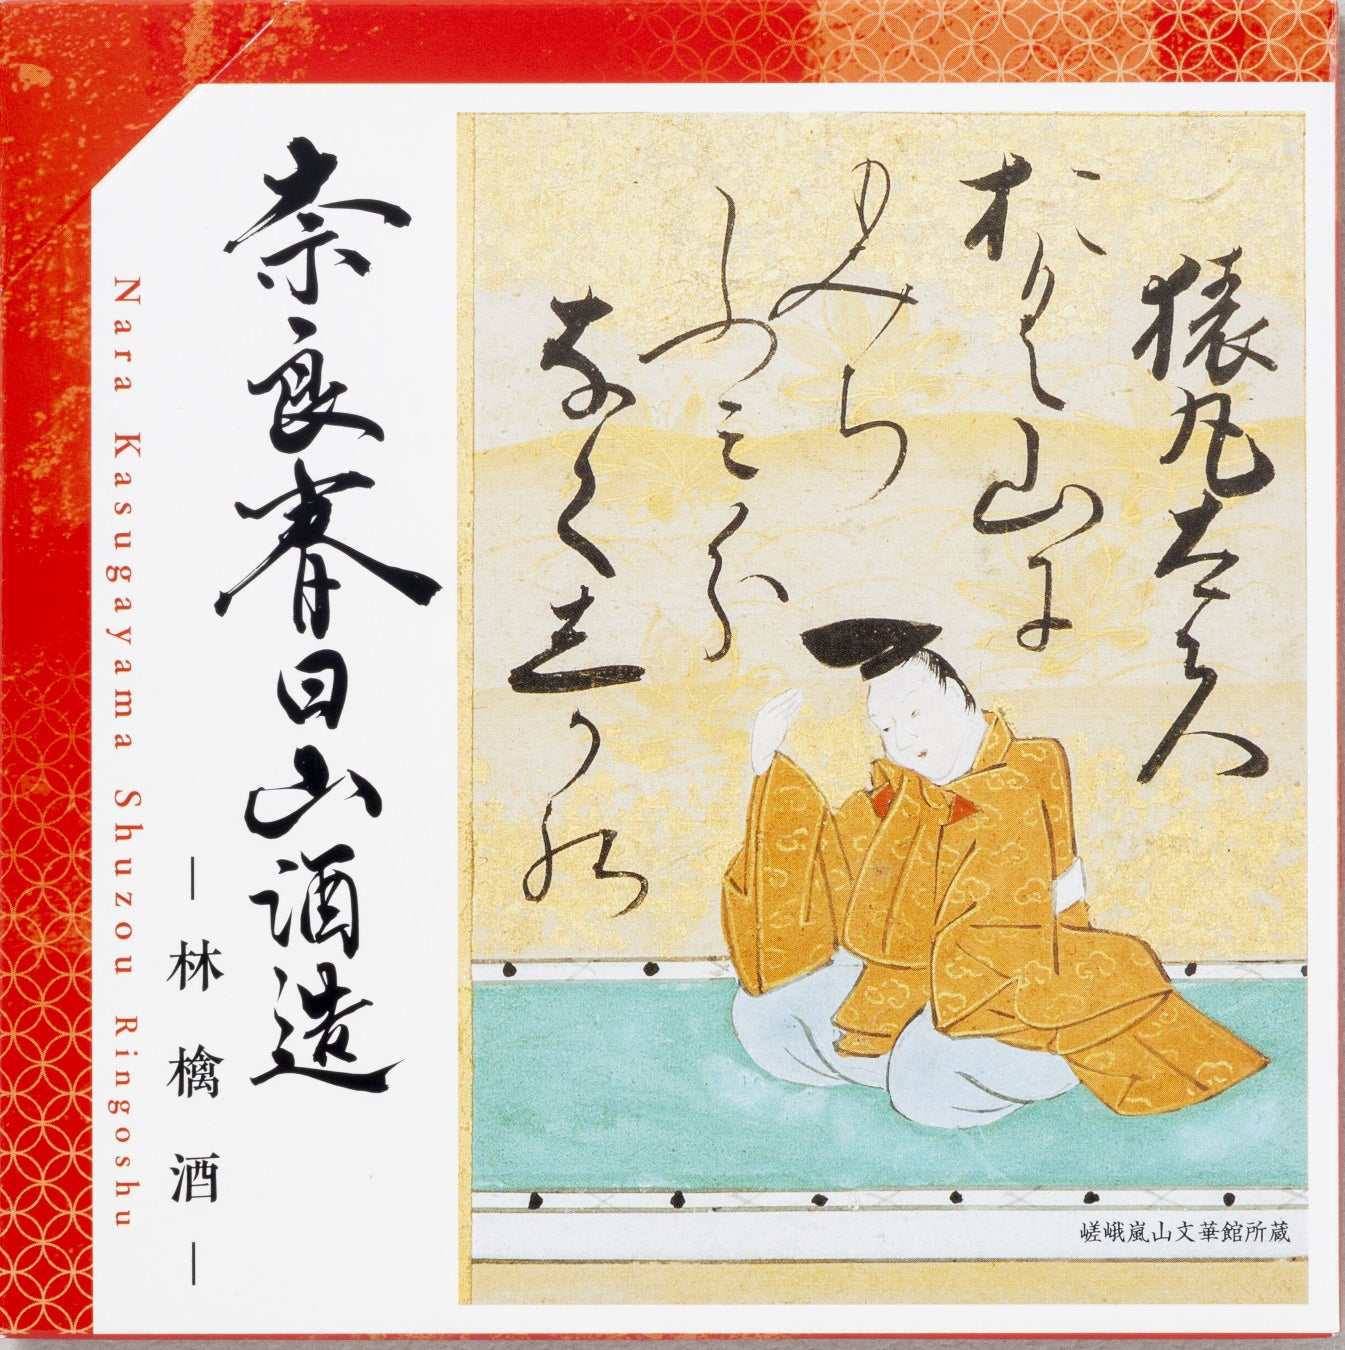 猿丸太夫
おく山に
もみち
ふミ分
なく志かの
嵯峨嵐山文華館所蔵
奈良春日山酒造
―林檎酒―
Nara Kasugayama Shuzou Ringoshu